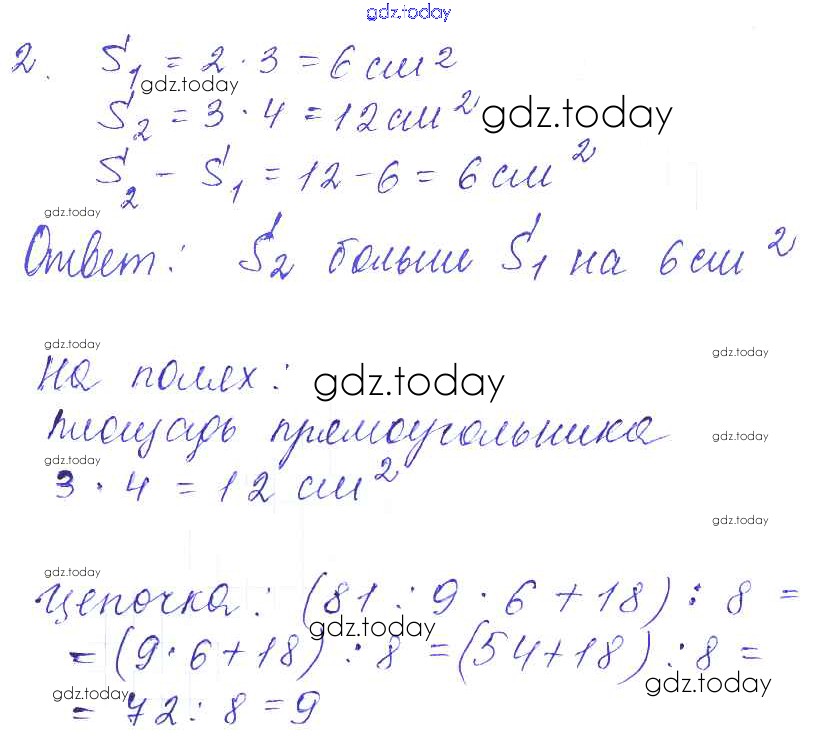 gdz.today
2. S₁ = 2 · 3 = 6 см²
gdz.today
S₂ = 3 · 4 = 12 см² gdz.today
S₂ - S₁ = 12 - 6 = 6 см²
gdz.today
Ответ: S₂ больше S₁ на 6 см²
gdz.today
gdz.today
На полях: gdz.today
площадь прямоугольника
gdz.today
gdz.today
3 · 4 = 12 см²
gdz.today
gdz.today
Цепочка: (81 : 9 · 6 + 18) : 8 =
gdz.today
= (9 · 6 + 18) : 8 = (54 + 18) : 8 =
gdz.today
gdz.today
= 72 : 8 = 9